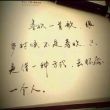 喜欢一首歌，很
多时候，不是喜欢它，只
是借一种方式，去怀念
一个人。